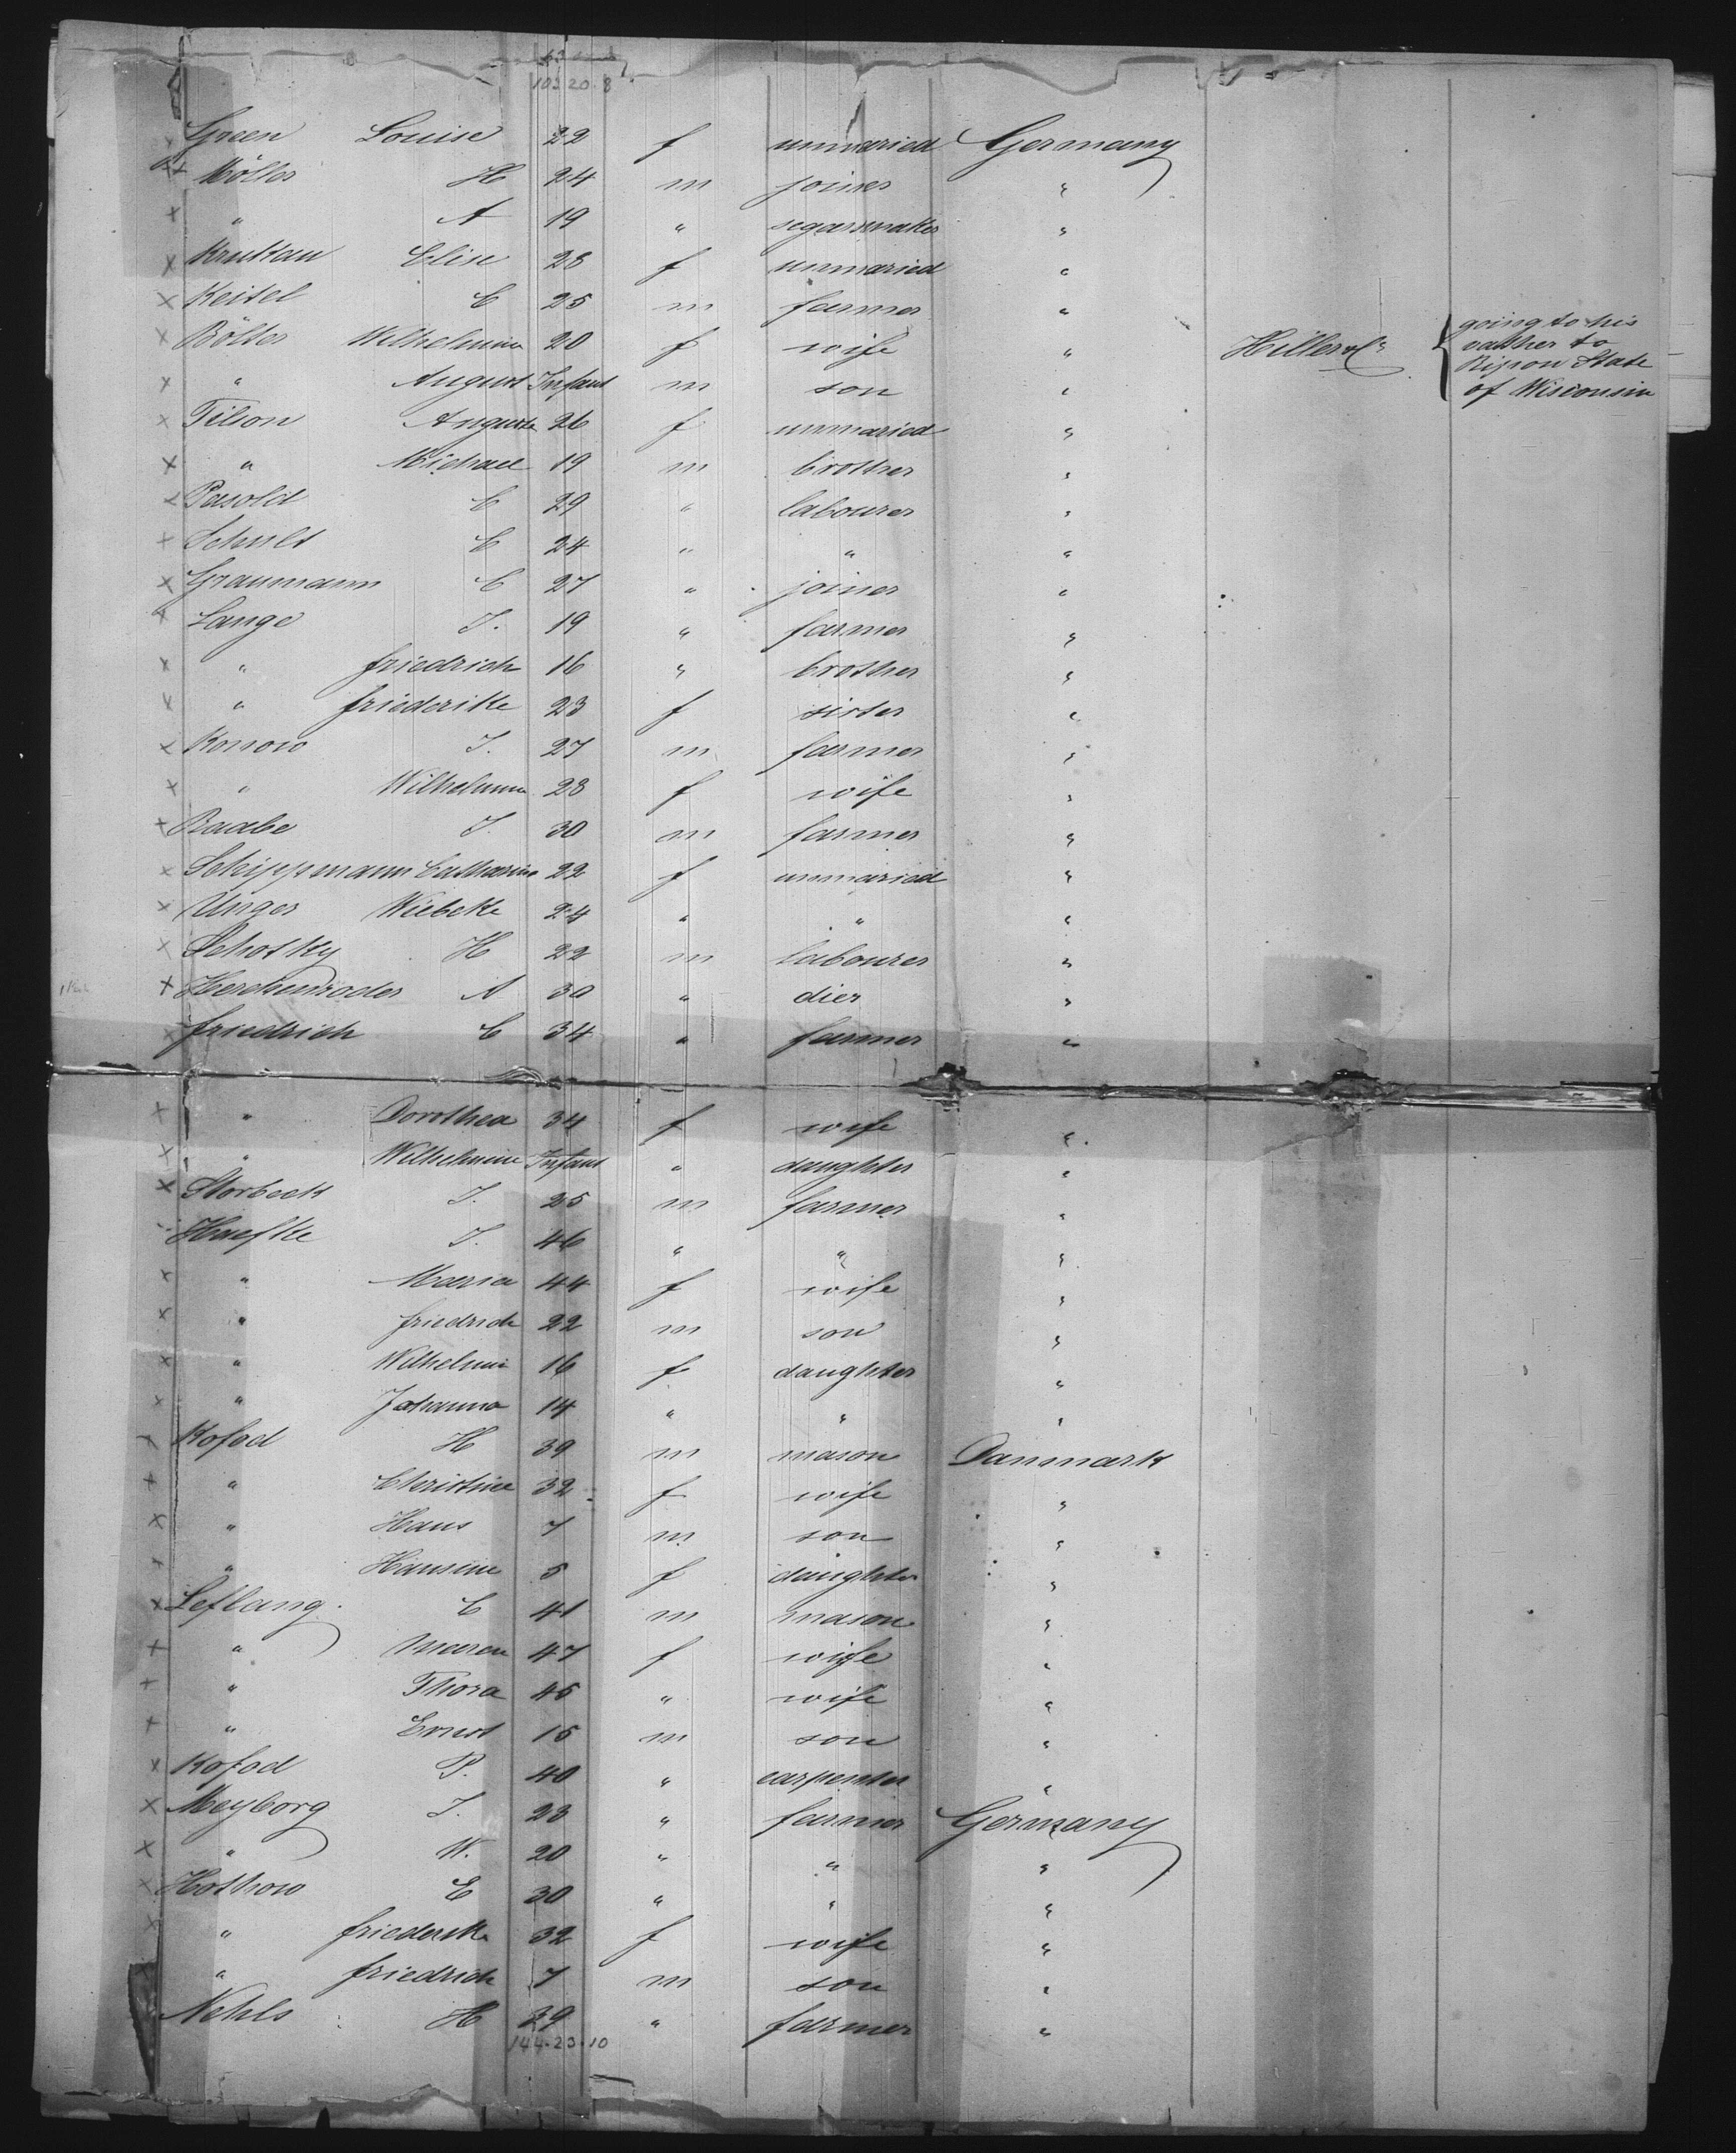 102 20 8
Green Louise 22 f unmaried Germany
Möller H 24 m joiner "
" A 19 " segarsmaker "
Krukau Elise 28 f unmaried "
Keitel C 25 m farmer "
Bölter Wilhelmine 20 f wife " going to his
" August Infant m son " Ripon State
of Wisconsin
Tilson Auguste 26 f unmaried "
" Michael 19 m brother "
Pasold C 29 " labourer "
Schult C 24 " " "
Graumann C 27 " joiner "
Lange J. 19 " farmer "
" friedrich 16 " brother "
" friederike 23 f sister "
Konow J. 27 m farmer "
" Wilhelmine 28 f wife "
Raabe J. 30 m farmer "
Schippmann Catharine 22 f unmaried "
Unger Wiebcke 24 " " "
Schotky H 22 m labourer "
A 30 " dier "
friedrich C 34 " farmer "
" Dorothea 34 f wife "
" Wilhelmine Infant " daughter "
Storbeck J. 25 m farmer "
Haefke J. 46 " " "
" Maria 44 f wife "
" friedrich 22 m son "
" Wilhelmine 16 f daughter "
" Johanna 14 " " "
Kofod H 39 m mason Danmark
" Christine 32 f wife "
" Hans 7 m son "
" Hansine 5 f daughter "
Leflang C 41 m mason "
" Maren 47 f wife "
" Thora 45 " wife "
" Ernst 15 m son "
Kofod P. 40 " carpenter "
Meyborg J. 23 " farmer Germany
" W. 20 " " "
Hothow E 30 " " "
" friederike 32 f wife "
" friedrich 7 m son "
Nehls H 39 " farmer "
144.23.10